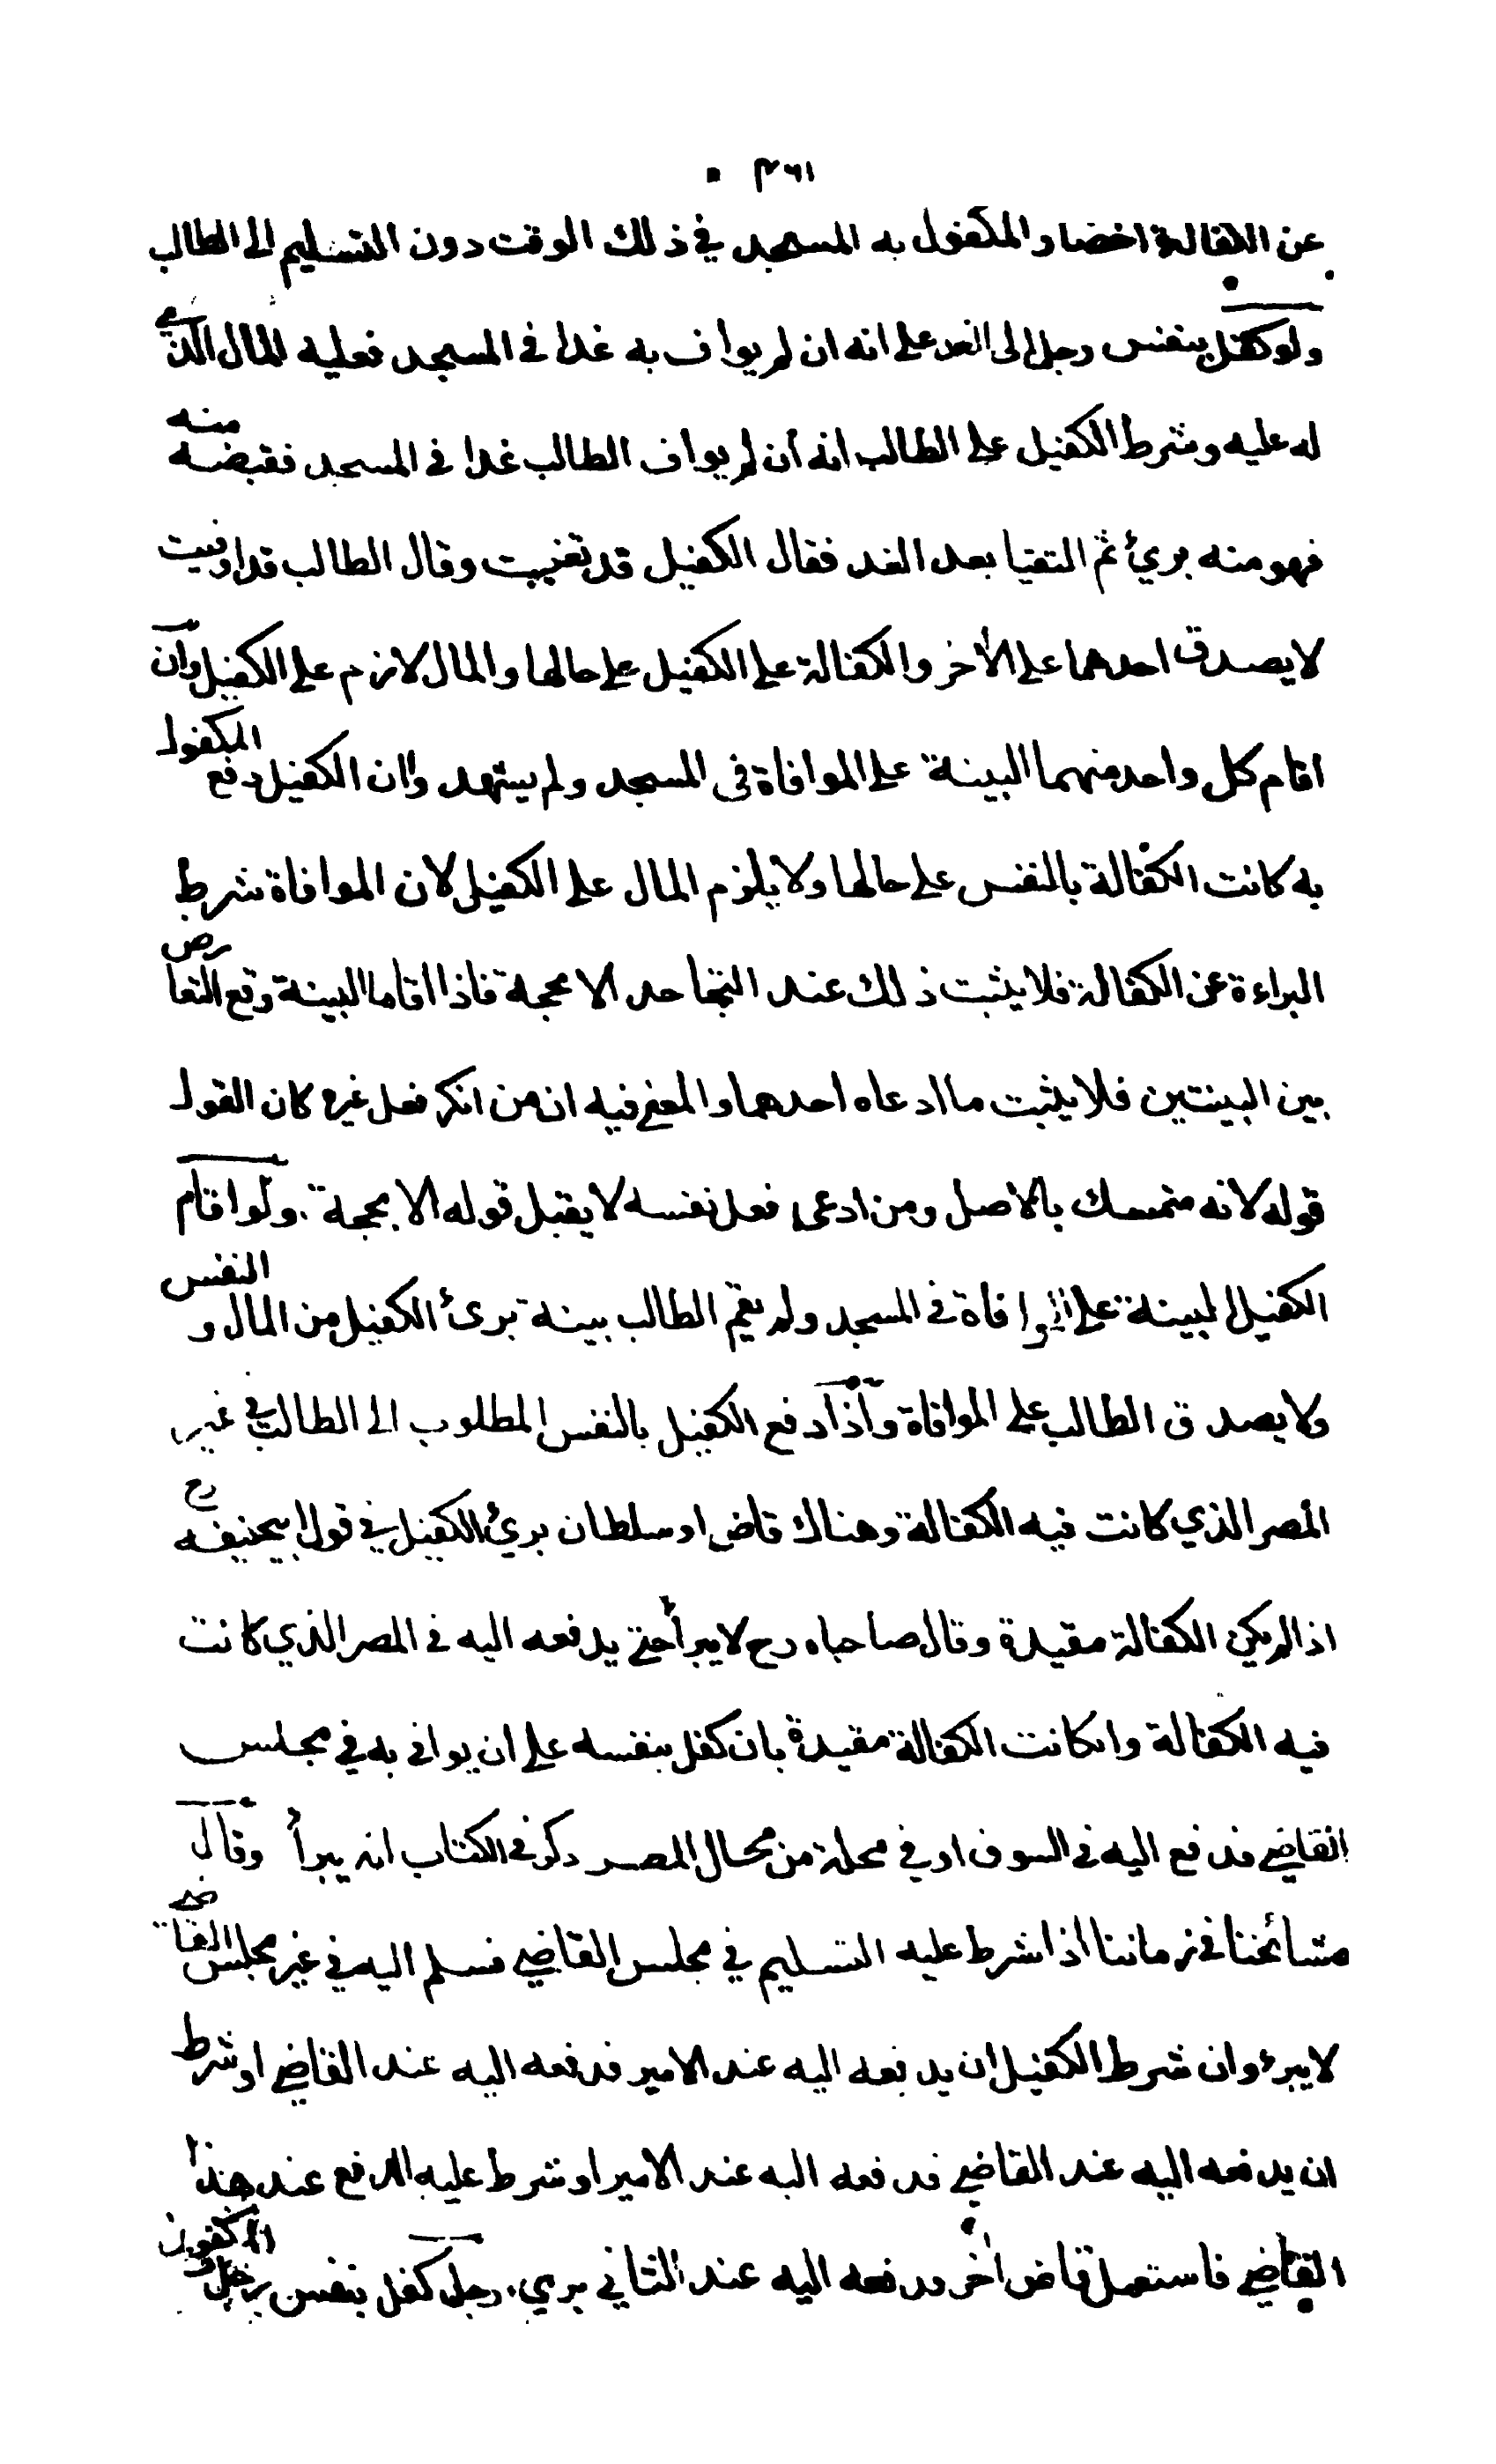 ٣٦١
عن الكفالة احضار المكفول به المسجد في ذلك الوقت دون التسليم الى الطالب
ولو كفل بنفس رجل الى الغد على انه ان لم يواف به غدا في المسجد فعليه المال الذي
له عليه وشرط الكفيل على الطالب انه ان لم يواف الطالب غدا في المسجد فقبضه منه
فهو منه بريئ ثم التقيا بعد الغد فقال الكفيل قد تغيبت وقال الطالب قد اوفيت
لا يصدق احدهما على الأخر والكفالة على الكفيل على حالها والمال لازم على الكفيل وان
اقام كل واحد منهما البينة على الموافاة في المسجد ولم يشهد وا ان الكفيل دفع المكفول
به كانت الكفالة بالنفس على حالها ولا يلزم المال على الكفيل لان الموافاة شرط
البراءة عن الكفالة فلا يثبت ذلك عند التجاحد الا بحجة فاذا اقاما البينة وقع التعارض
بين البينتين فلا يثبت ما ادعاه احدهما والمعنى فيه ان من انكر فعل غيره كان القول
قوله لانه متمسك بالاصل ومن ادعى فعل نفسه لا يقبل قوله الا بحجة . ولو اقام
الكفيل البينة على الموافاة في المسجد ولم يقم الطالب بينة برئ الكفيل من المال و النفس
ولا يصدق الطالب على الموافاة واذا دفع الكفيل بالنفس المطلوب الى الطالب في غير
المصر الذي كانت فيه الكفالة وهناك قاض او سلطان بريئ الكفيل في قول ابيحنيفه رح
اذا لم يكن الكفالة مقيدة وقال صاحباه رح لا يبرأ حتى يدفعه اليه في المصر الذي كانت
فيه الكفالة وان كانت الكفالة مقيدة بان كفل بنفسه على ان يوافى به في مجلس
القاضي فدفع اليه في السوق او في محلة من محال المصر ذكر في الكتاب انه يبرأ وقال
مشائخنا في زماننا اذا شرط عليه التسليم في مجلس القاضي فسلم اليه في غير مجلس القاضي
لا يبرء وان شرط الكفيل ان يدفعه اليه عند الامير فدفعه اليه عند القاضي او شرط
ان يدفعه اليه عند القاضي فدفعه اليه عند الامير او شرط عليه الدفع عند هذا
القاضي فاستعمل قاض اخر فدفعه اليه عند الثاني بري . رجل كفل بنفس رجل